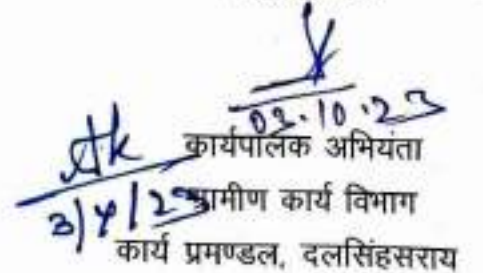 03.10.23
कार्यपालक अभियंता
ग्रामीण कार्य विभाग
कार्य प्रमण्डल, दलसिंहसराय